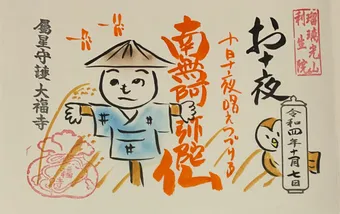 瑠璃光山
利生院
お十夜
令和四年十一月七日
十日十夜唱えつづける
南無阿弥陀仏
屬星守護 大福寺